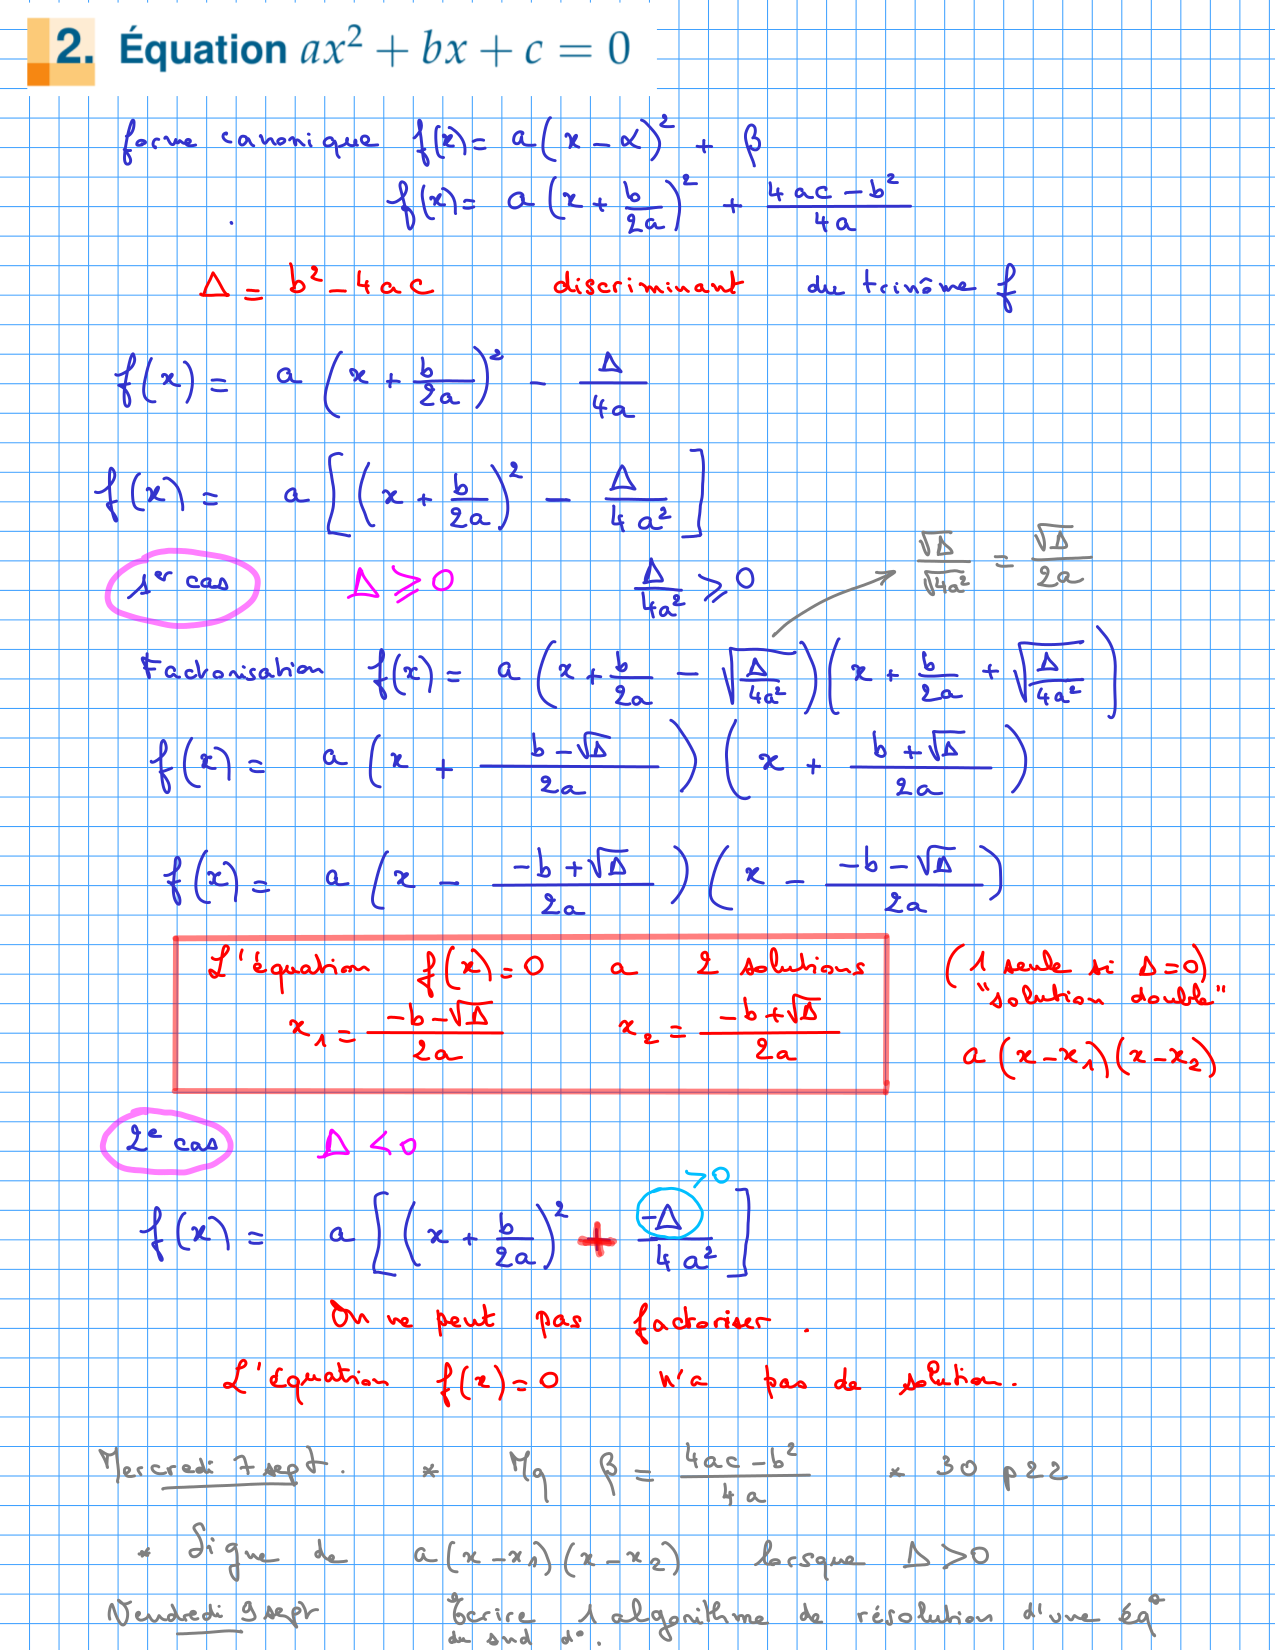 2. Équation ax² + bx + c = 0
forme canonique f(x) = a(x - α)² + β
f(x) = a(x + b/2a)² + (4ac - b²)/4a
Δ = b² - 4ac discriminant du trinôme f
f(x) = a(x + b/2a)² - Δ/4a
f(x) = a[(x + b/2a)² - Δ/4a²]
1er cas Δ ⩾ 0 Δ/4a² ⩾ 0 √Δ/√4a² = √Δ/2a
Factorisation f(x) = a(x + b/2a - √(Δ/4a²))(x + b/2a + √(Δ/4a²))
f(x) = a(x + (b - √Δ)/2a)(x + (b + √Δ)/2a)
f(x) = a(x - (-b + √Δ)/2a)(x - (-b - √Δ)/2a)
L'équation f(x) = 0 a 2 solutions
x₁ = (-b - √Δ)/2a x₂ = (-b + √Δ)/2a
(1 seule si Δ = 0)
"solution double"
a(x - x₁)(x - x₂)
2e cas Δ < 0
f(x) = a[(x + b/2a)² + -Δ/4a²] > 0
On ne peut pas factoriser.
L'équation f(x) = 0 n'a pas de solution.
Mercredi 7 sept. * Mq β = (4ac - b²)/4a * 30 p22
* Signe de a(x - x₁)(x - x₂) lorsque Δ > 0
Vendredi 9 sept Écrire 1 algorithme de résolution d'une éq°
du snd d°.